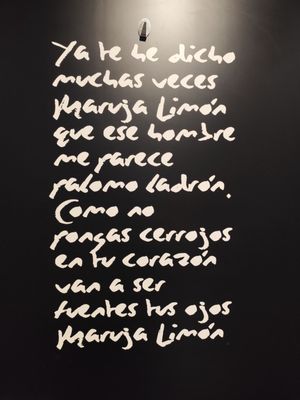 Ya te he dicho
muchas veces
Maruja Limón
que ese hombre
me parece
palomo ladrón.
Como no
pongas cerrojos
en tu corazón
van a ser
fuentes tus ojos
Maruja Limón